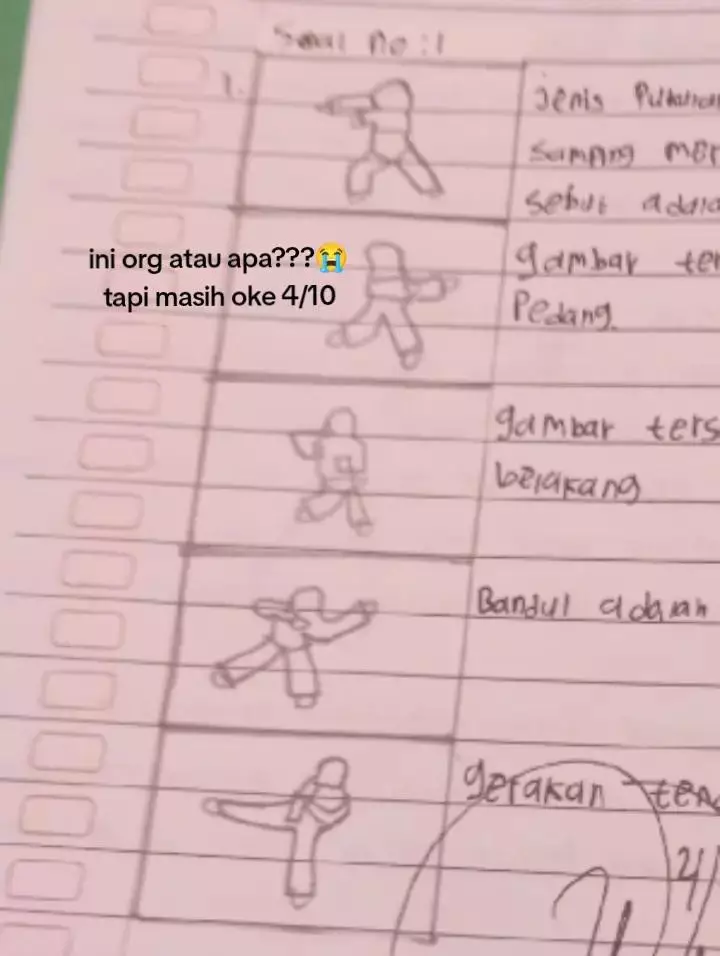 Soal no:1
1.
Jenis Pukulan
samping
sebut
gambar
Pedang.
ini org atau apa???😭
tapi masih oke 4/10
gambar
belakang
Bandul adalah
gerakan